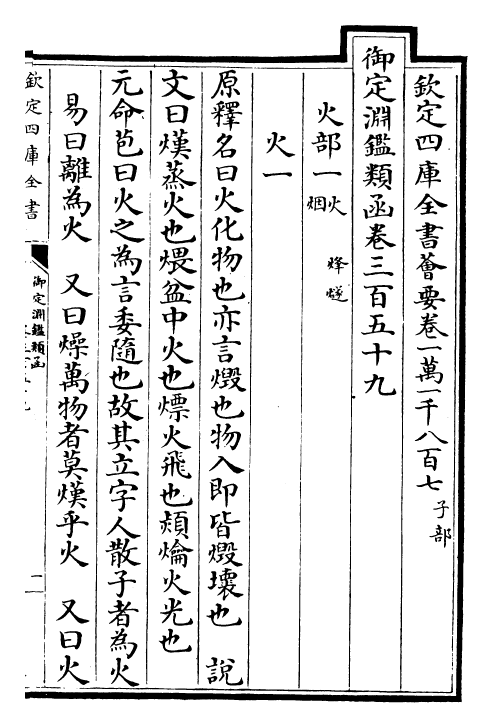 欽定四庫全書薈要卷一萬一千八百七 子部
御定淵鑑類函卷三百五十九
火部一 火 烟 烽燧
火一
原釋名曰火化物也亦言燬也物入即皆燬壞也 說
文曰熯蒸火也煨盆中火也熛火飛也熲爚火光也
元命苞曰火之為言委隨也故其立字人散子者為火
易曰離為火 又曰燥萬物者莫熯乎火 又曰火
欽定四庫全書
御定淵鑑類函